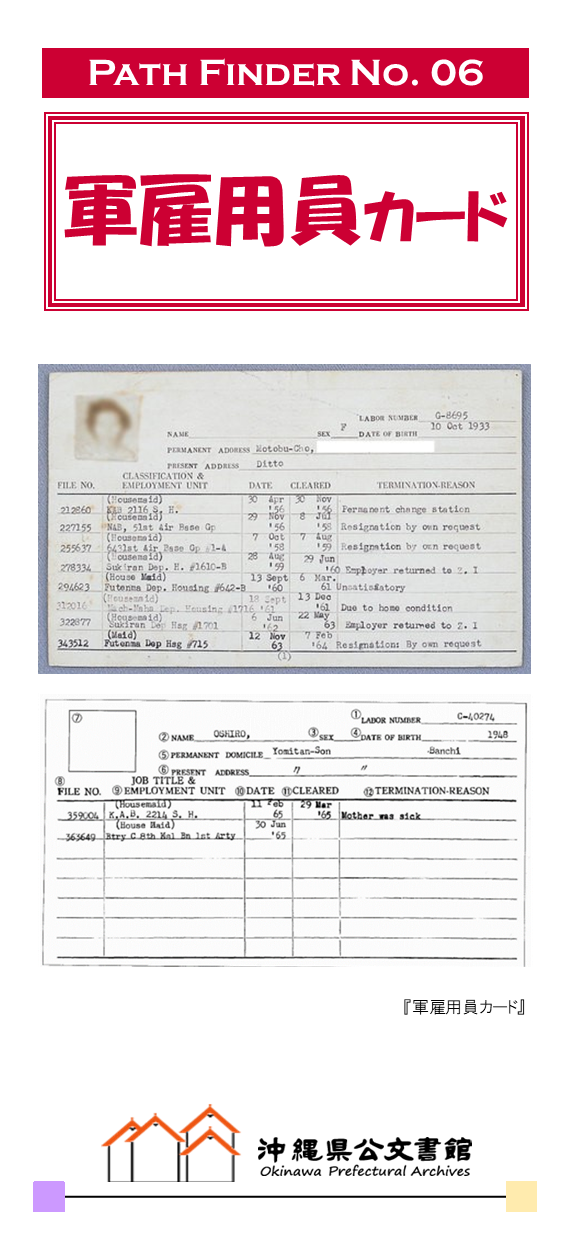 PATH FINDER NO. 06
軍雇用員カード
LABOR NUMBER G-8695
NAME SEX F DATE OF BIRTH 10 Oct 1933
PERMANENT ADDRESS Motobu-Cho,
PRESENT ADDRESS Ditto
FILE NO. CLASSIFICATION & EMPLOYMENT UNIT DATE CLEARED TERMINATION-REASON
(Housemaid) 30 Apr 30 Nov
212860 2116 S. H. '56 '56 Permanent change station
(Housemaid) 29 Nov 8 Jul
227155 NAB, 51st Air Base Gp '56 '58 Resignation by own request
(Housemaid) 7 Oct 7 Aug
255637 6431st Air Base Gp '58 '59 Resignation by own request
(Housemaid) 28 Aug 29 Jun
278334 Sukiran Dep. H. #1610-B '59 '60 Employer returned to Z. I
(House Maid) 13 Sept 6 Mar.
294623 Futenma Dep. Housing #642-B '60 61 Unsatisfatory
(Housemaid) 18 Sept 13 Dec
312016 Mach-Naha Dep. Housing #1716 '61 '61 Due to home condition
(Housemaid) 6 Jun 22 May
322877 Sukiran Dep Hsg #1701 '62 63 Employer returned to Z. I
(Maid) 12 Nov 7 Feb
343512 Futenma Dep Hsg #715 63 '64 Resignation: By own request
(1)
⑦
①LABOR NUMBER C-40274
②NAME OSHIRO, ③SEX ④DATE OF BIRTH 1948
⑤PERMANENT DOMICILE Yomitan-Son Banchi
⑥PRESENT ADDRESS 〃 〃
⑧FILE NO. ⑨JOB TITLE & EMPLOYMENT UNIT ⑩DATE ⑪CLEARED ⑫TERMINATION-REASON
(Housemaid) 11 Feb 29 Mar
359004 K.A.B. 2214 S. H. 65 '65 Mother was sick
(House Maid) 30 Jun
363649 Btry C 8th Msl Bn 1st Arty '65
『軍雇用員カード』
沖縄県公文書館
Okinawa Prefectural Archives